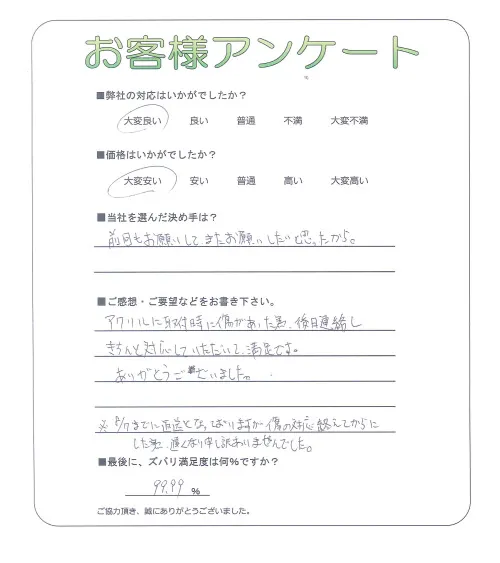 お客様アンケート
■弊社の対応はいかがでしたか？
大変良い 良い 普通 不満 大変不満
■価格はいかがでしたか？
大変安い 安い 普通 高い 大変高い
■当社を選んだ決め手は？
前回もお願いしてまたお願いしたいと思ったから。
■ご感想・ご要望などをお書き下さい。
アクリルに取付時に傷があった為、後日連絡し
きちんと対応していただいて、満足です。
ありがとうございました。
※ 5/7までに返送となっておりますが傷の対応終えてからに
した為、遅くなり申し訳ありませんでした。
■最後に、ズバリ満足度は何％ですか？
99.99 %
ご協力頂き、誠にありがとうございました。